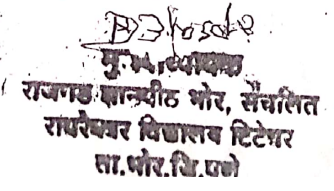 मुख्याध्यापक
राजगड ज्ञानपीठ भोर, संचलित
रायरेश्वर विद्यालय टिटेघर
ता.भोर.जि.पुणे